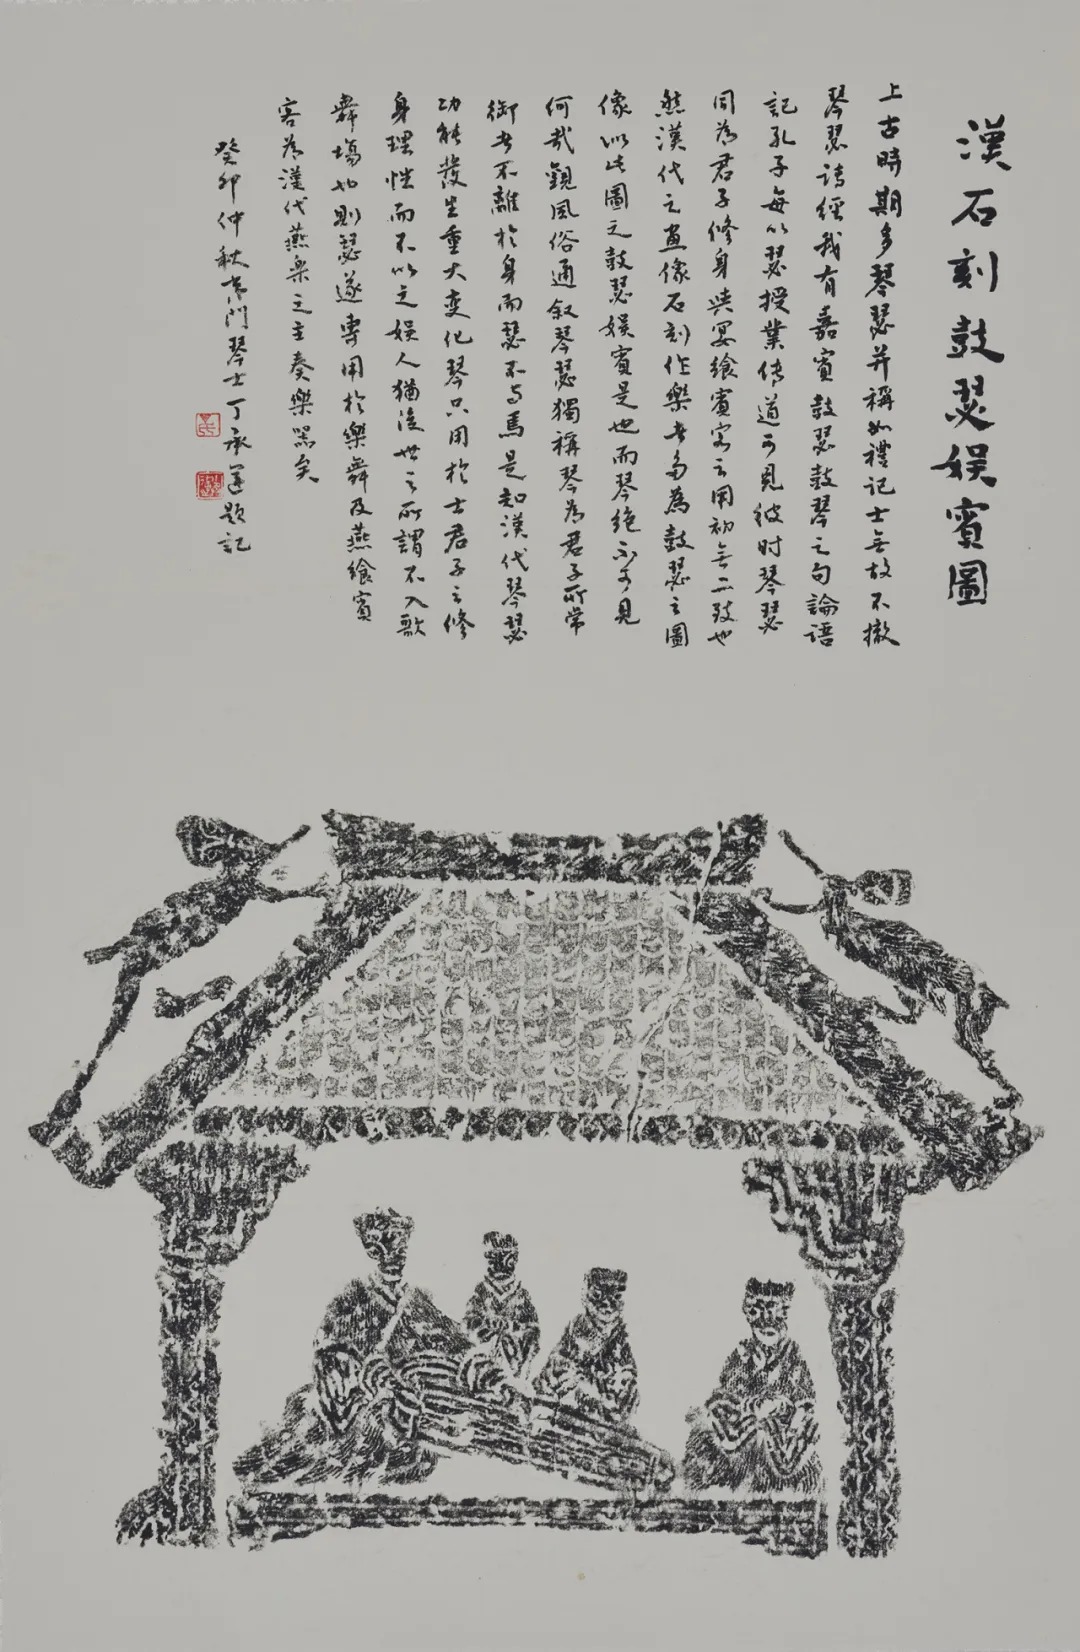 漢石刻鼓瑟娱賓圖
上古時期多琴瑟并稱如禮记士無故不撤
琴瑟詩經我有嘉賓鼓瑟鼓琴之句論语
記孔子每以瑟授業传道可見彼时琴瑟
同為君子修身與宴飨賓客之用初無二致也
然漢代之画像石刻作樂者多為鼓瑟之圖
像似此圖之鼓瑟娱賓是也而琴绝不可見
何哉觀風俗通叙琴瑟獨稱琴為君子所常
御者不離於身而瑟不与焉是知漢代琴瑟
功能發生重大变化琴只用於士君子之修
身理性而不以之娱人猶後世之所謂不入歌
舞塲也則瑟遂専用於樂舞及燕飨賓
客為漢代燕乐之主奏樂器矣
癸卯仲秋 門琴士丁承運题記